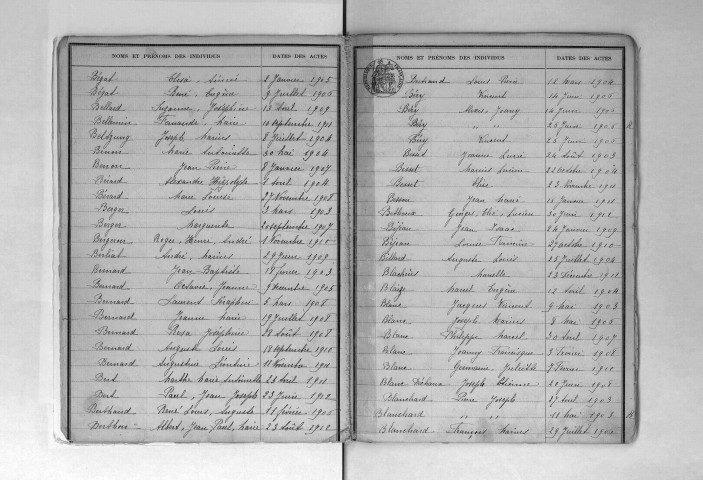 NOMS ET PRÉNOMS DES INDIVIDUS DATES DES ACTES
Bégat Elisa 2 Janvier 1905
Bégat René, Eugène 9 Juillet 1906
Bellard Suzanne, Joséphine 13 Avril 1909
Fernande Marie 11 Septembre 1911
Joseph Marius 8 Juillet 1904
Marie Antoinette 30 Mai 1904
Jean Pierre 8 Janvier 1907
Bérard Alexandre Hippolyte Avril 1904
Bérard Marie Louise 27 Novembre 1908
Berger Louis 3 Mars 1903
Berger Marguerite 20 Septembre 1907
Bergeron Roger, Henri, André 1 Novembre 1910
Berliat André, Marius 29 Juin 1909
Bernard Jean-Baptiste 18 Janvier 1903
Bernard Octavie, Jeanne 9 1905
Bernard Laurent Séraphin 5 Mars 1908
Bernard Jeanne Marie 19 Juillet 1908
Bernard Rosa Joséphine 28 Août 1908
Bernard Auguste Louis 18 Septembre 1910
Bernard Augustine 11 Novembre 1911
Bert Marthe Marie Antoinette 23 Avril 1911
Bert Paul, Jean Joseph 23 Juin 1912
Berthaud René Louis, Auguste 11 Février 1906
Berthon Albert, Jean Paul, Marie 23 Août 1912
NOMS ET PRÉNOMS DES INDIVIDUS DATES DES ACTES
Bertrand Louis Pierre 12 Mars 1904
Béry Vincent 14 Juin 1906
Béry Joany 14 Juin 1906
Béry " " 25 Juin 1906
Béry Vincent 25 Juin 1906
Jeanne Lucie 24 Août 1903
Besset Marius Lucien 22 Octobre 1904
Besset Elise 23 Novembre 1911
Besson Jean Marie 15 Janvier 1911
Georges, Lucien 30 Juin 1912
Béjean Jean Isaac 24 Janvier 1909
Béjean Louise 27 Octobre 1910
Billard Auguste Louis 25 Juillet 1904
23 Décembre 1912
Blaise Marcel Eugène 12 Avril 1904
Blanc Jacques Vincent 9 Mai 1903
Blanc Joseph Marius 8 Mai 1905
Blanc Philippe Marcel 30 Avril 1907
Blanc Joanny Francisque 3 Février 1908
Blanc Germaine Juliette 7 Février 1910
Blanc Joseph Etienne 20 Juin 1908
Blanchard Pierre Joseph 27 Avril 1903
Blanchard " " 11 Mai 1903
Blanchard François Marius 29 Juillet 1906